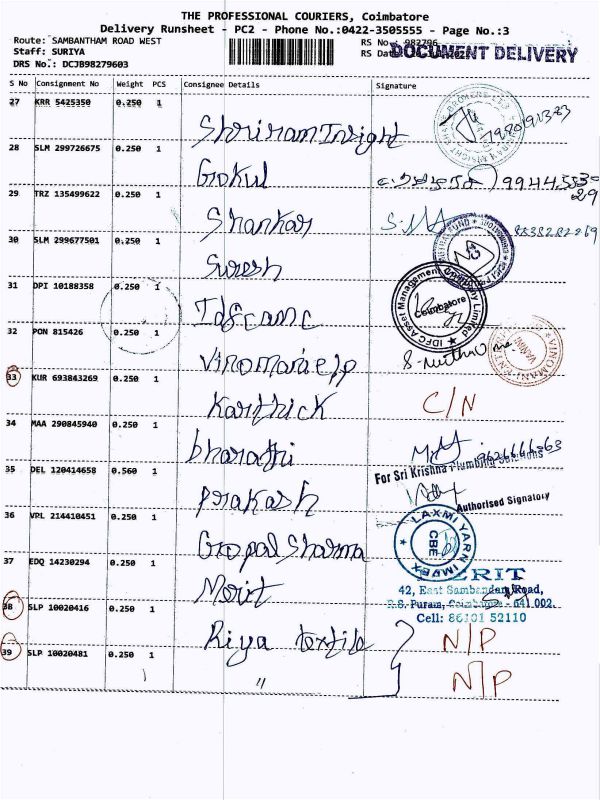 THE PROFESSIONAL COURIERS, Coimbatore
Delivery Runsheet - PC2 - Phone No.:0422-3505555 - Page No.:3
Route: SAMBANTHAM ROAD WEST
RS No.: 982796
Staff: SURIYA
RS Dat
DOCUMENT DELIVERY
DRS No.: DCJB98279603
S No Consignment No Weight PCS Consignee Details Signature
27 KRR 5425350 0.250 1 Shriram Insight
28 SLM 299726675 0.250 1 Gokul
29 TRZ 135499622 0.250 1 Shankar
30 SLM 299677501 0.250 1 Suresh
31 DPI 10188358 0.250 1 Idfcamc
IDFC Asset Management Company Limited
Coimbatore
32 PON 815426 0.250 1 Vinomaraepp
33 KUR 693843269 0.250 1 Karthick C/N
34 MAA 290845940 0.250 1 bharathi
For Sri Krishna Plumbing Solutions
35 DEL 120414658 0.560 1 Prakash
Authorised Signatory
36 VPL 214410451 0.250 1 Gopal Sharma
LAXMI YARN IMPEX
CBE
37 EDQ 14230294 0.250 1 Merit
MERIT
42, East Sambandam Road,
R.S. Puram, Coimbatore - 641 002.
Cell: 86101 52110
38 SLP 10020416 0.250 1 Riya textile N/P
39 SLP 10020481 0.250 1 " N/P